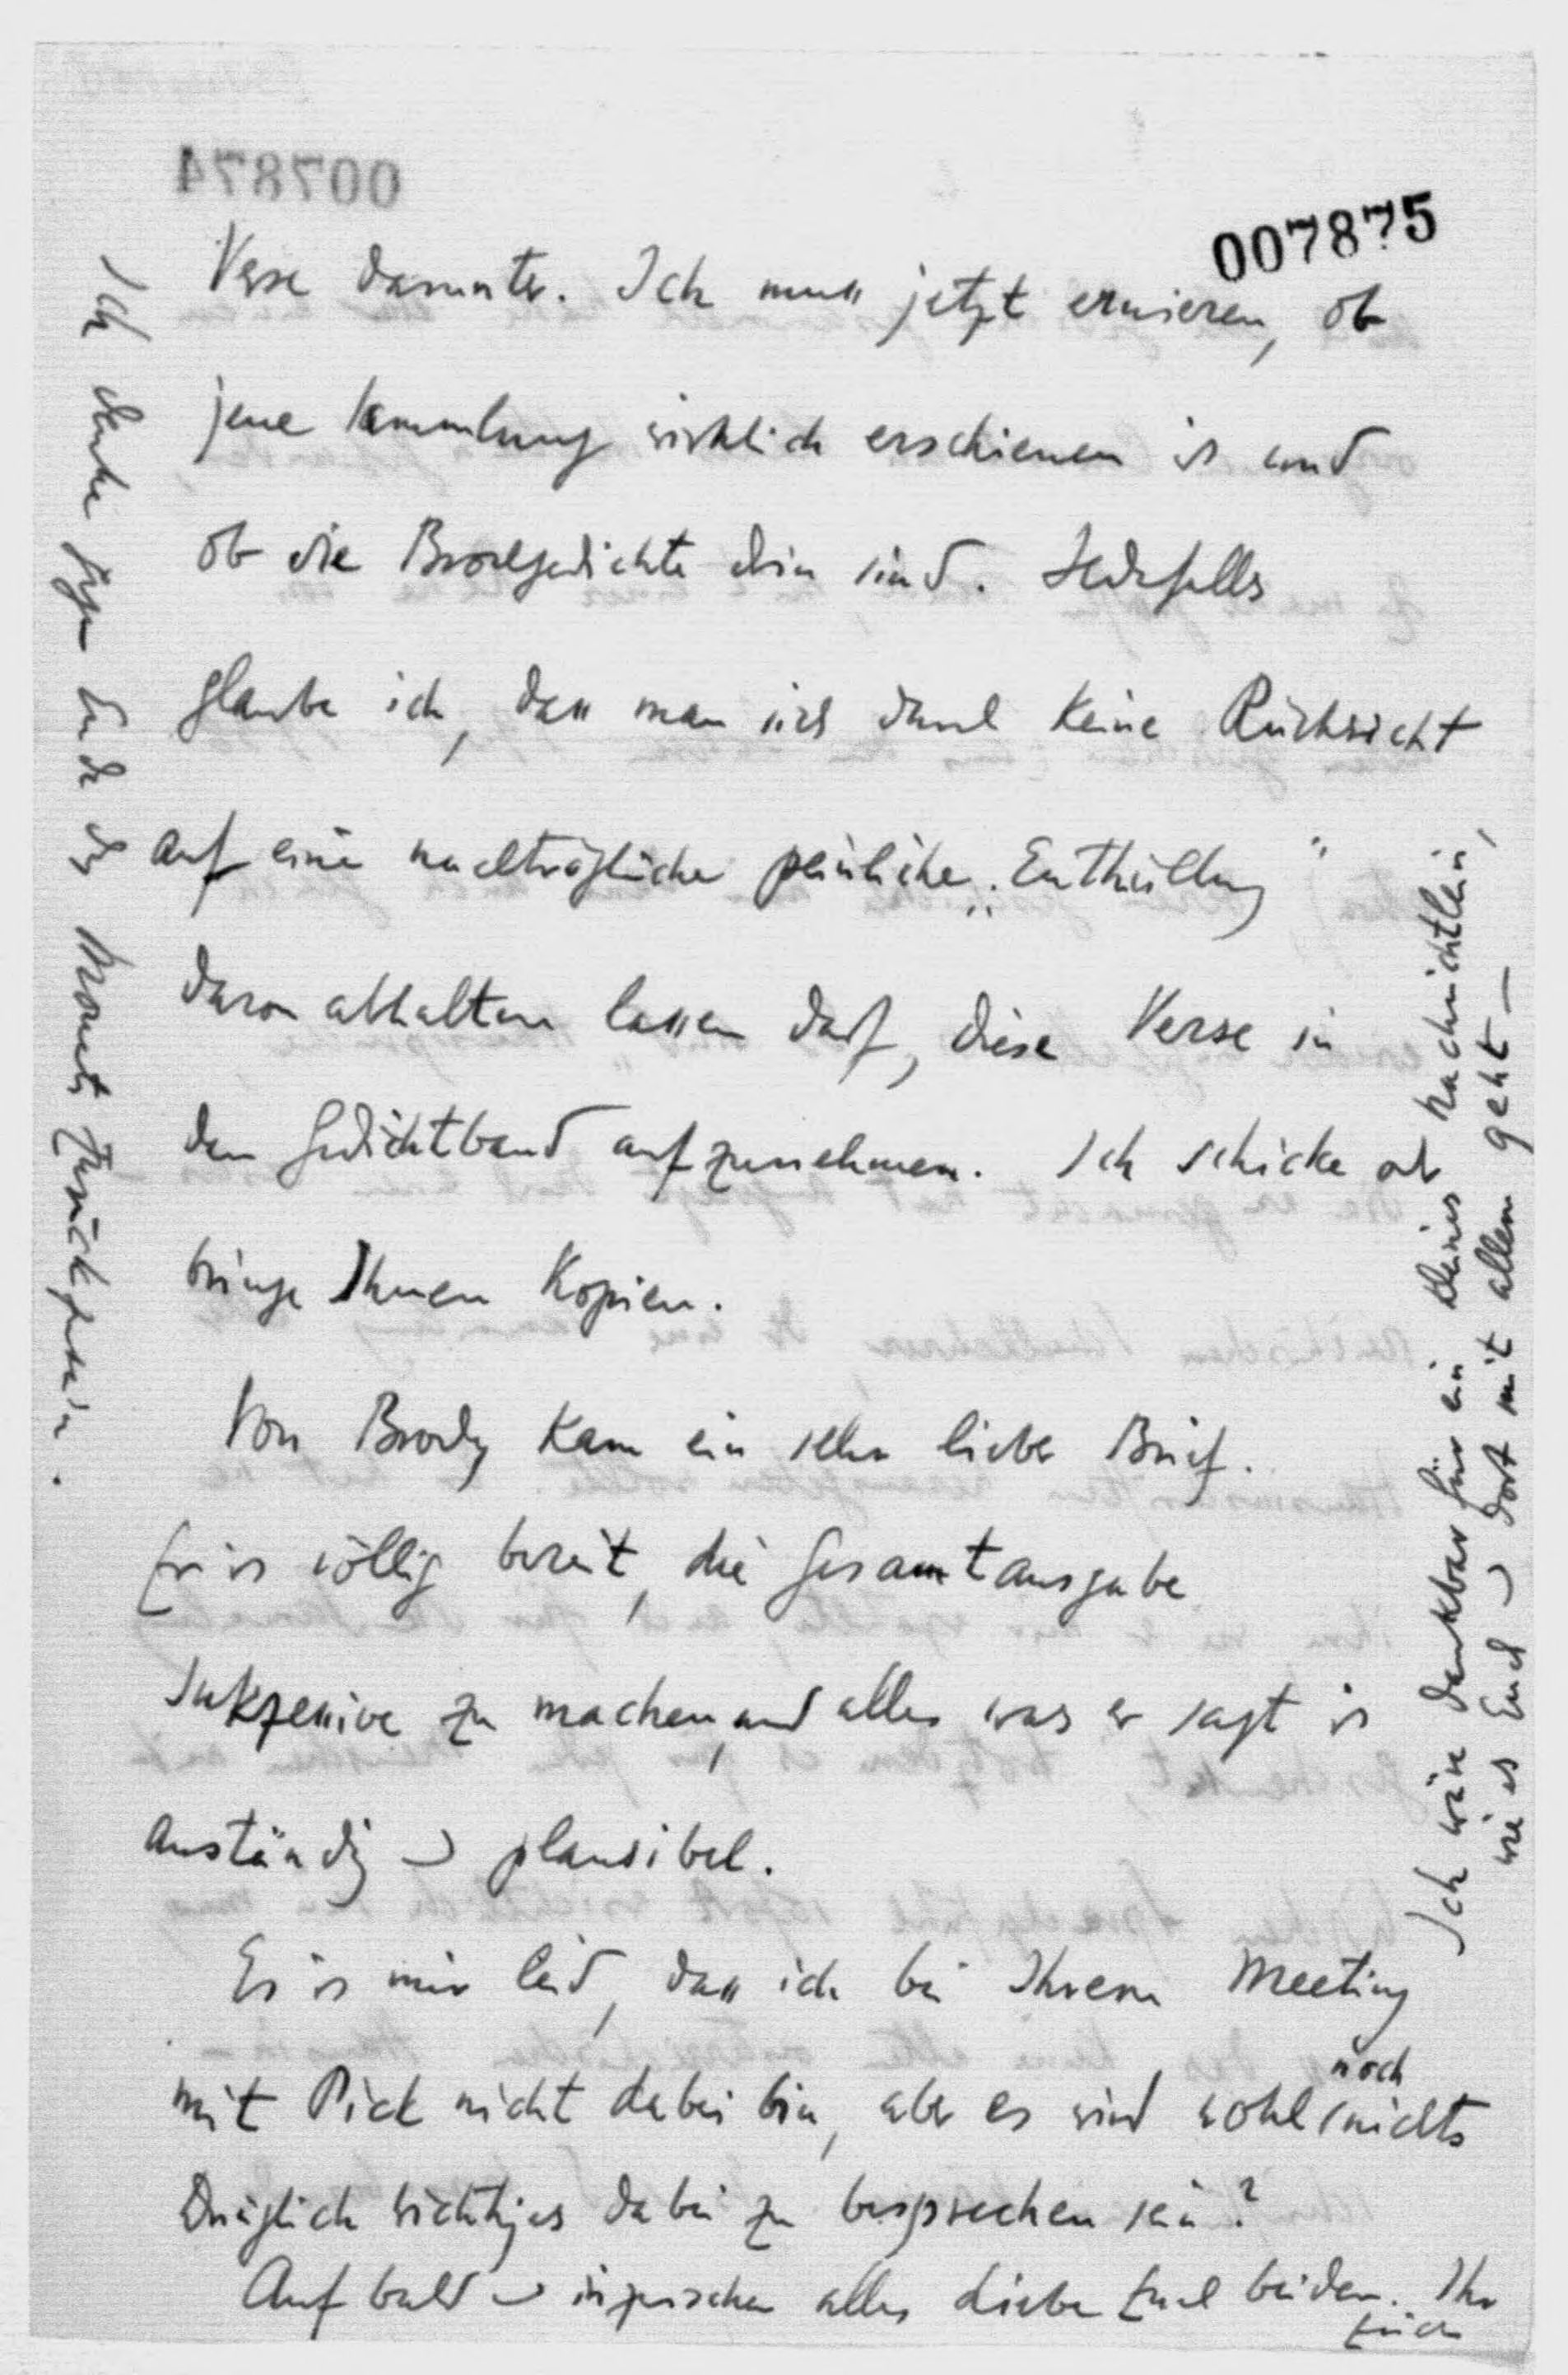 007875
Verse darunter. Ich muss jetzt eruieren, ob
jene Sammlung wirklich erschienen is und
ob die Brochgedichte drin sind. Jedesfalls
glaube ich, dass man sich durch keine Rücksicht
auf eine nachträgliche peinliche „Enthüllung“
davon abhalten lassen darf, diese Verse in
den Gedichtband aufzunehmen. Ich schicke od
bringe Ihnen Kopien.
Von Brody kam ein sehr lieber Brief.
Er is völlig bereit, die Gesamtausgabe
sukzessive zu machen, und alles was er sagt is
anständig u plausibel.
Es is mir leid, dass ich bei Ihrem Meeting
mit Pick nicht dabei bin, aber es wird wohl noch nichts
Dringlich wichtiges dabei zu besprechen sein?
Auf bald u inzwischen alles Liebe Euch beiden. Ihr
Erich
Ich wäre dankbar für ein kleines Nachrichtlein,
wie es Euch u dort mit allem geht—
Ich denke gegen Ende des Monats zurück zu sein.
007874